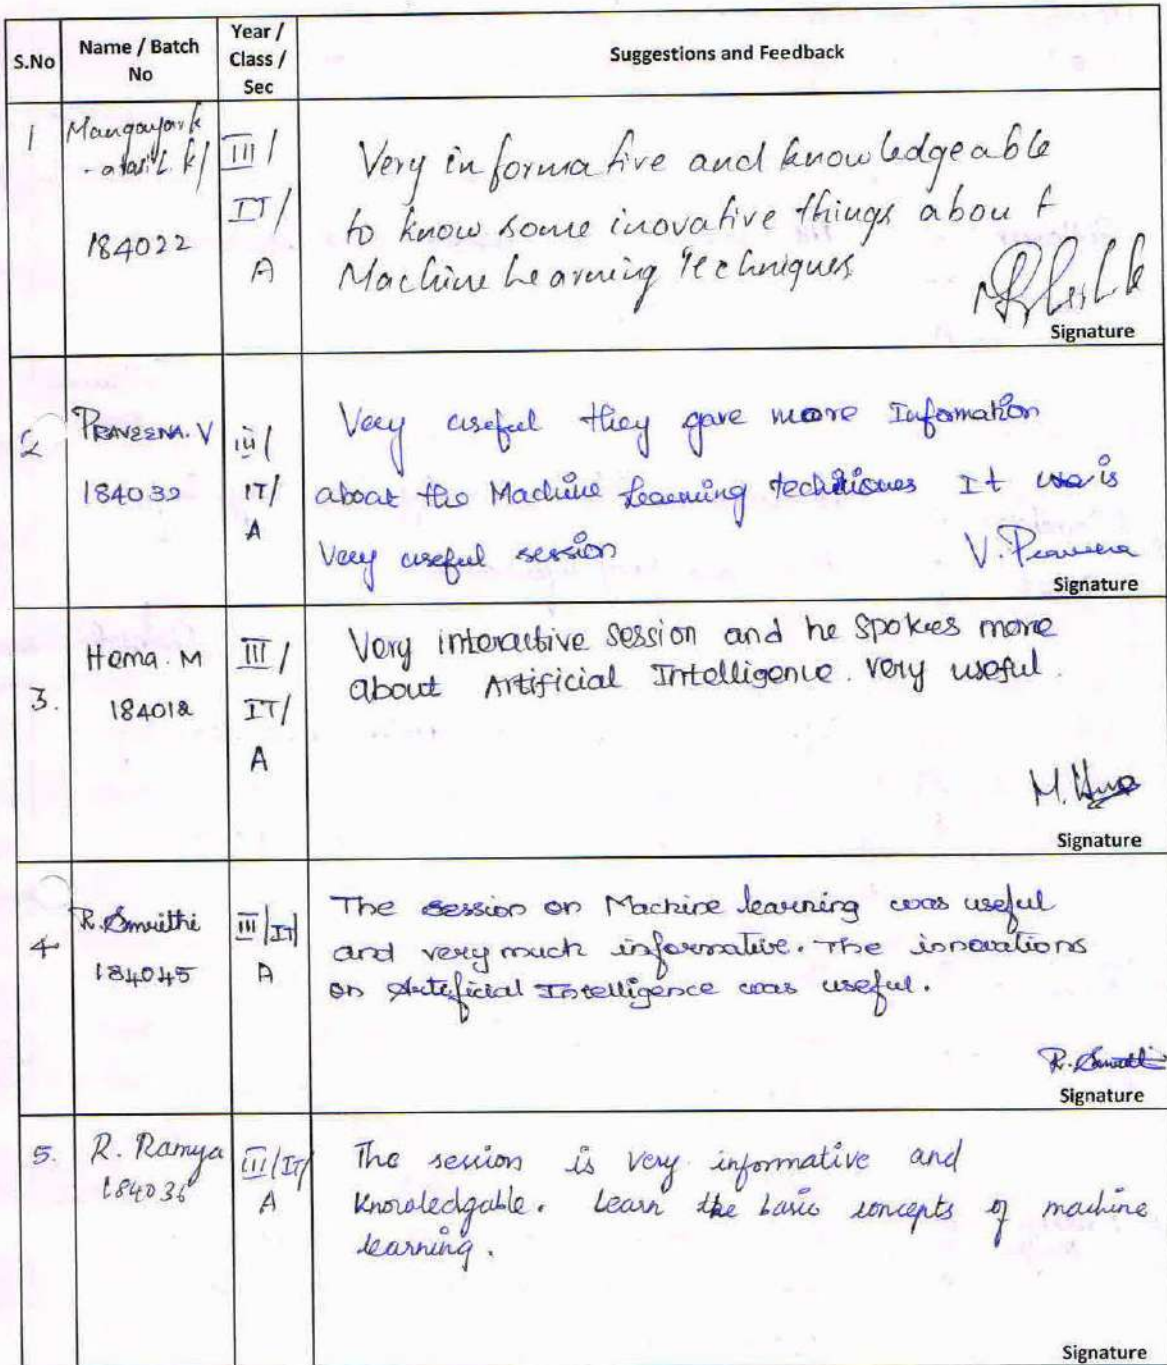 S.No
Name / Batch
No
Year /
Class /
Sec
Suggestions and Feedback
1
Mangayark
184022
III /
IT /
A
Very informative and knowledgeable
to know some inovative things about
Machine Learning Techniques
Signature
2
PRAVEENA. V
184032
iii /
IT/
A
Very useful they gave more Information
about the Machine Learning techniques It is
Very useful session
V. Praveena
Signature
3.
Hema. M
184012
III /
IT/
A
Very interactive session and he spokes more
about Artificial Intelligence. very useful.
M. Hema
Signature
4
R. Smrithi
184045
III/IT/
A
The session on Machine learning was useful
and very much informative. The innovations
on Artificial Intelligence was useful.
R. Smrithi
Signature
5.
R. Ramya
184036
III/IT/
A
The session is very informative and
knowledgable. Learn the basic concepts of machine
learning.
Signature